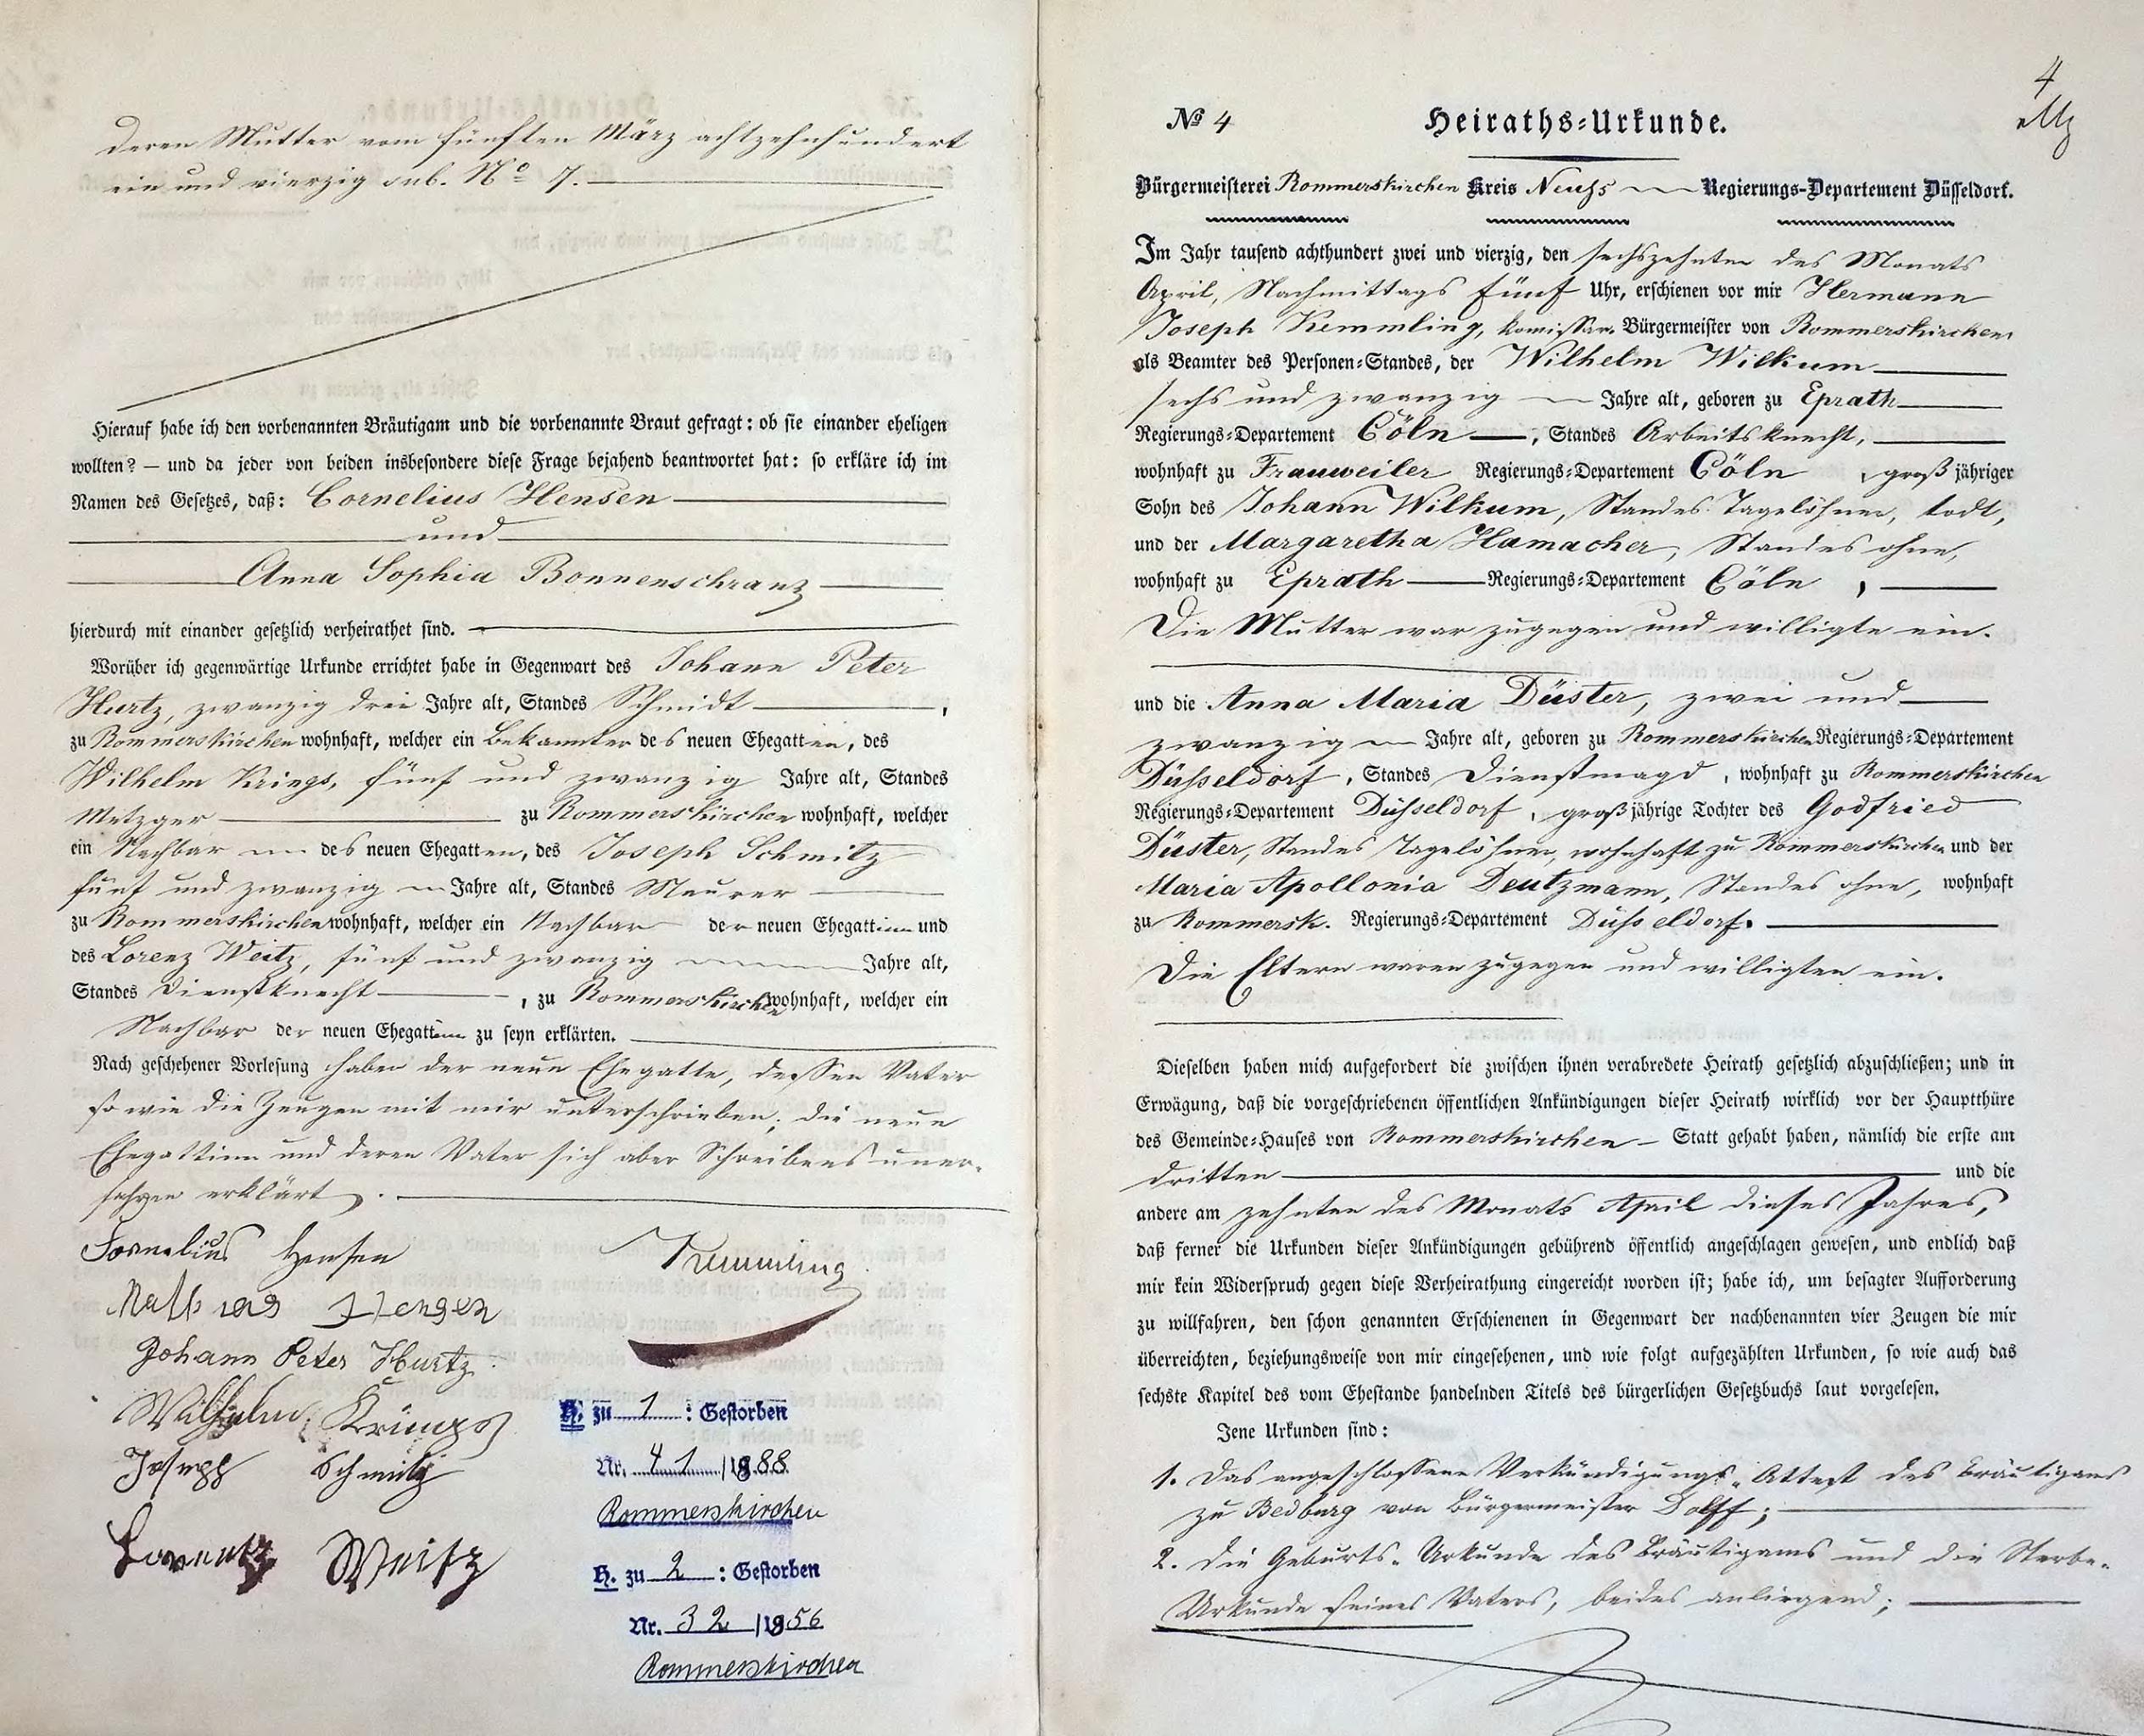 deren Mutter vom fünften März achtzehnhundert
ein und vierzig sub. No 7.
Hierauf habe ich den vorbenannten Bräutigam und die vorbenannte Braut gefragt: ob sie einander eheligen
wollten? — und da jeder von beiden insbesondere diese Frage bejahend beantwortet hat: so erkläre ich im
Namen des Gesetzes, daß: Cornelius Hensen
und
Anna Sophia Bonnenschranz
hierdurch mit einander gesetzlich verheirathet sind.
Worüber ich gegenwärtige Urkunde errichtet habe in Gegenwart des Johann Peter
Hurtz, zwanzig drei Jahre alt, Standes Schmidt,
zu Rommerskirchen wohnhaft, welcher ein Bekannter des neuen Ehegatten, des
Wilhelm Krings, fünf und zwanzig Jahre alt, Standes
Metzger zu Rommerskirchen wohnhaft, welcher
ein Nachbar des neuen Ehegatten, des Joseph Schmitz
fünf und zwanzig Jahre alt, Standes Maurer
zu Rommerskirchen wohnhaft, welcher ein Nachbar der neuen Ehegattinn und
des Lorenz Weitz, fünf und zwanzig Jahre alt,
Standes Dienstknecht, zu Rommerskirchen wohnhaft, welcher ein
Nachbar der neuen Ehegattinn zu seyn erklärten.
Nach geschehener Vorlesung haben der neue Ehegatte, dessen Vater
so wie die Zeugen mit mir unterschrieben; die neue
Ehegattinn und deren Vater sich aber Schreibens uner-
fahren erklärt.
Cornelius Hensen
Kemmling
Mathias Hensen
Johann Peter Hurtz
Wilhelm Krings
Joseph Schmitz
Lorentz Weitz
H. zu 1 : Gestorben
Nr. 41/1888
Rommerskirchen
H. zu 2 : Gestorben
Nr. 32/1956
Rommerskirchen
4
№ 4 Heiraths-Urkunde.
Bürgermeisterei Rommerskirchen Kreis Neuss Regierungs-Departement Düsseldorf.
Im Jahr tausend achthundert zwei und vierzig, den sechszehnten des Monats
April, Nachmittags fünf Uhr, erschienen vor mir Hermann
Joseph Kemmling, komissar. Bürgermeister von Rommerskirchen
als Beamter des Personen-Standes, der Wilhelm Wilkum
sechs und zwanzig Jahre alt, geboren zu Eprath
Regierungs-Departement Cöln, Standes Arbeitsknecht,
wohnhaft zu Frauweiler Regierungs-Departement Cöln, großjähriger
Sohn des Johann Wilkum, Standes Tagelöhner, todt,
und der Margaretha Hamacher, Standes ohne,
wohnhaft zu Eprath Regierungs-Departement Cöln,
Die Mutter war zugegen und willigte ein.
und die Anna Maria Düster, zwei und
zwanzig Jahre alt, geboren zu Rommerskirchen Regierungs-Departement
Düsseldorf, Standes Dienstmagd, wohnhaft zu Rommerskirchen
Regierungs-Departement Düsseldorf, großjährige Tochter des Godfried
Düster, Standes Tagelöhner, wohnhaft zu Rommerskirchen und der
Maria Apollonia Deutzmann, Standes ohne, wohnhaft
zu Rommersk. Regierungs-Departement Düsseldorf.
Die Eltern waren zugegen und willigten ein.
Dieselben haben mich aufgefordert die zwischen ihnen verabredete Heirath gesetzlich abzuschließen; und in
Erwägung, daß die vorgeschriebenen öffentlichen Ankündigungen dieser Heirath wirklich vor der Hauptthüre
des Gemeinde-Hauses von Rommerskirchen Statt gehabt haben, nämlich die erste am
dritten und die
andere am zehnten des Monats April dieses Jahres,
daß ferner die Urkunden dieser Ankündigungen gebührend öffentlich angeschlagen gewesen, und endlich daß
mir kein Widerspruch gegen diese Verheirathung eingereicht worden ist; habe ich, um besagter Aufforderung
zu willfahren, den schon genannten Erschienenen in Gegenwart der nachbenannten vier Zeugen die mir
überreichten, beziehungsweise von mir eingesehenen, und wie folgt aufgezählten Urkunden, so wie auch das
sechste Kapitel des vom Ehestande handelnden Titels des bürgerlichen Gesetzbuchs laut vorgelesen.
Jene Urkunden sind:
1. Das angeschlossene Verkündigungs-Attest des Bräutigams
zu Bedburg von Bürgermeister Dolff;
2. Die Geburts-Urkunde des Bräutigams und die Sterbe-
Urkunde seines Vaters, beides anliegend;